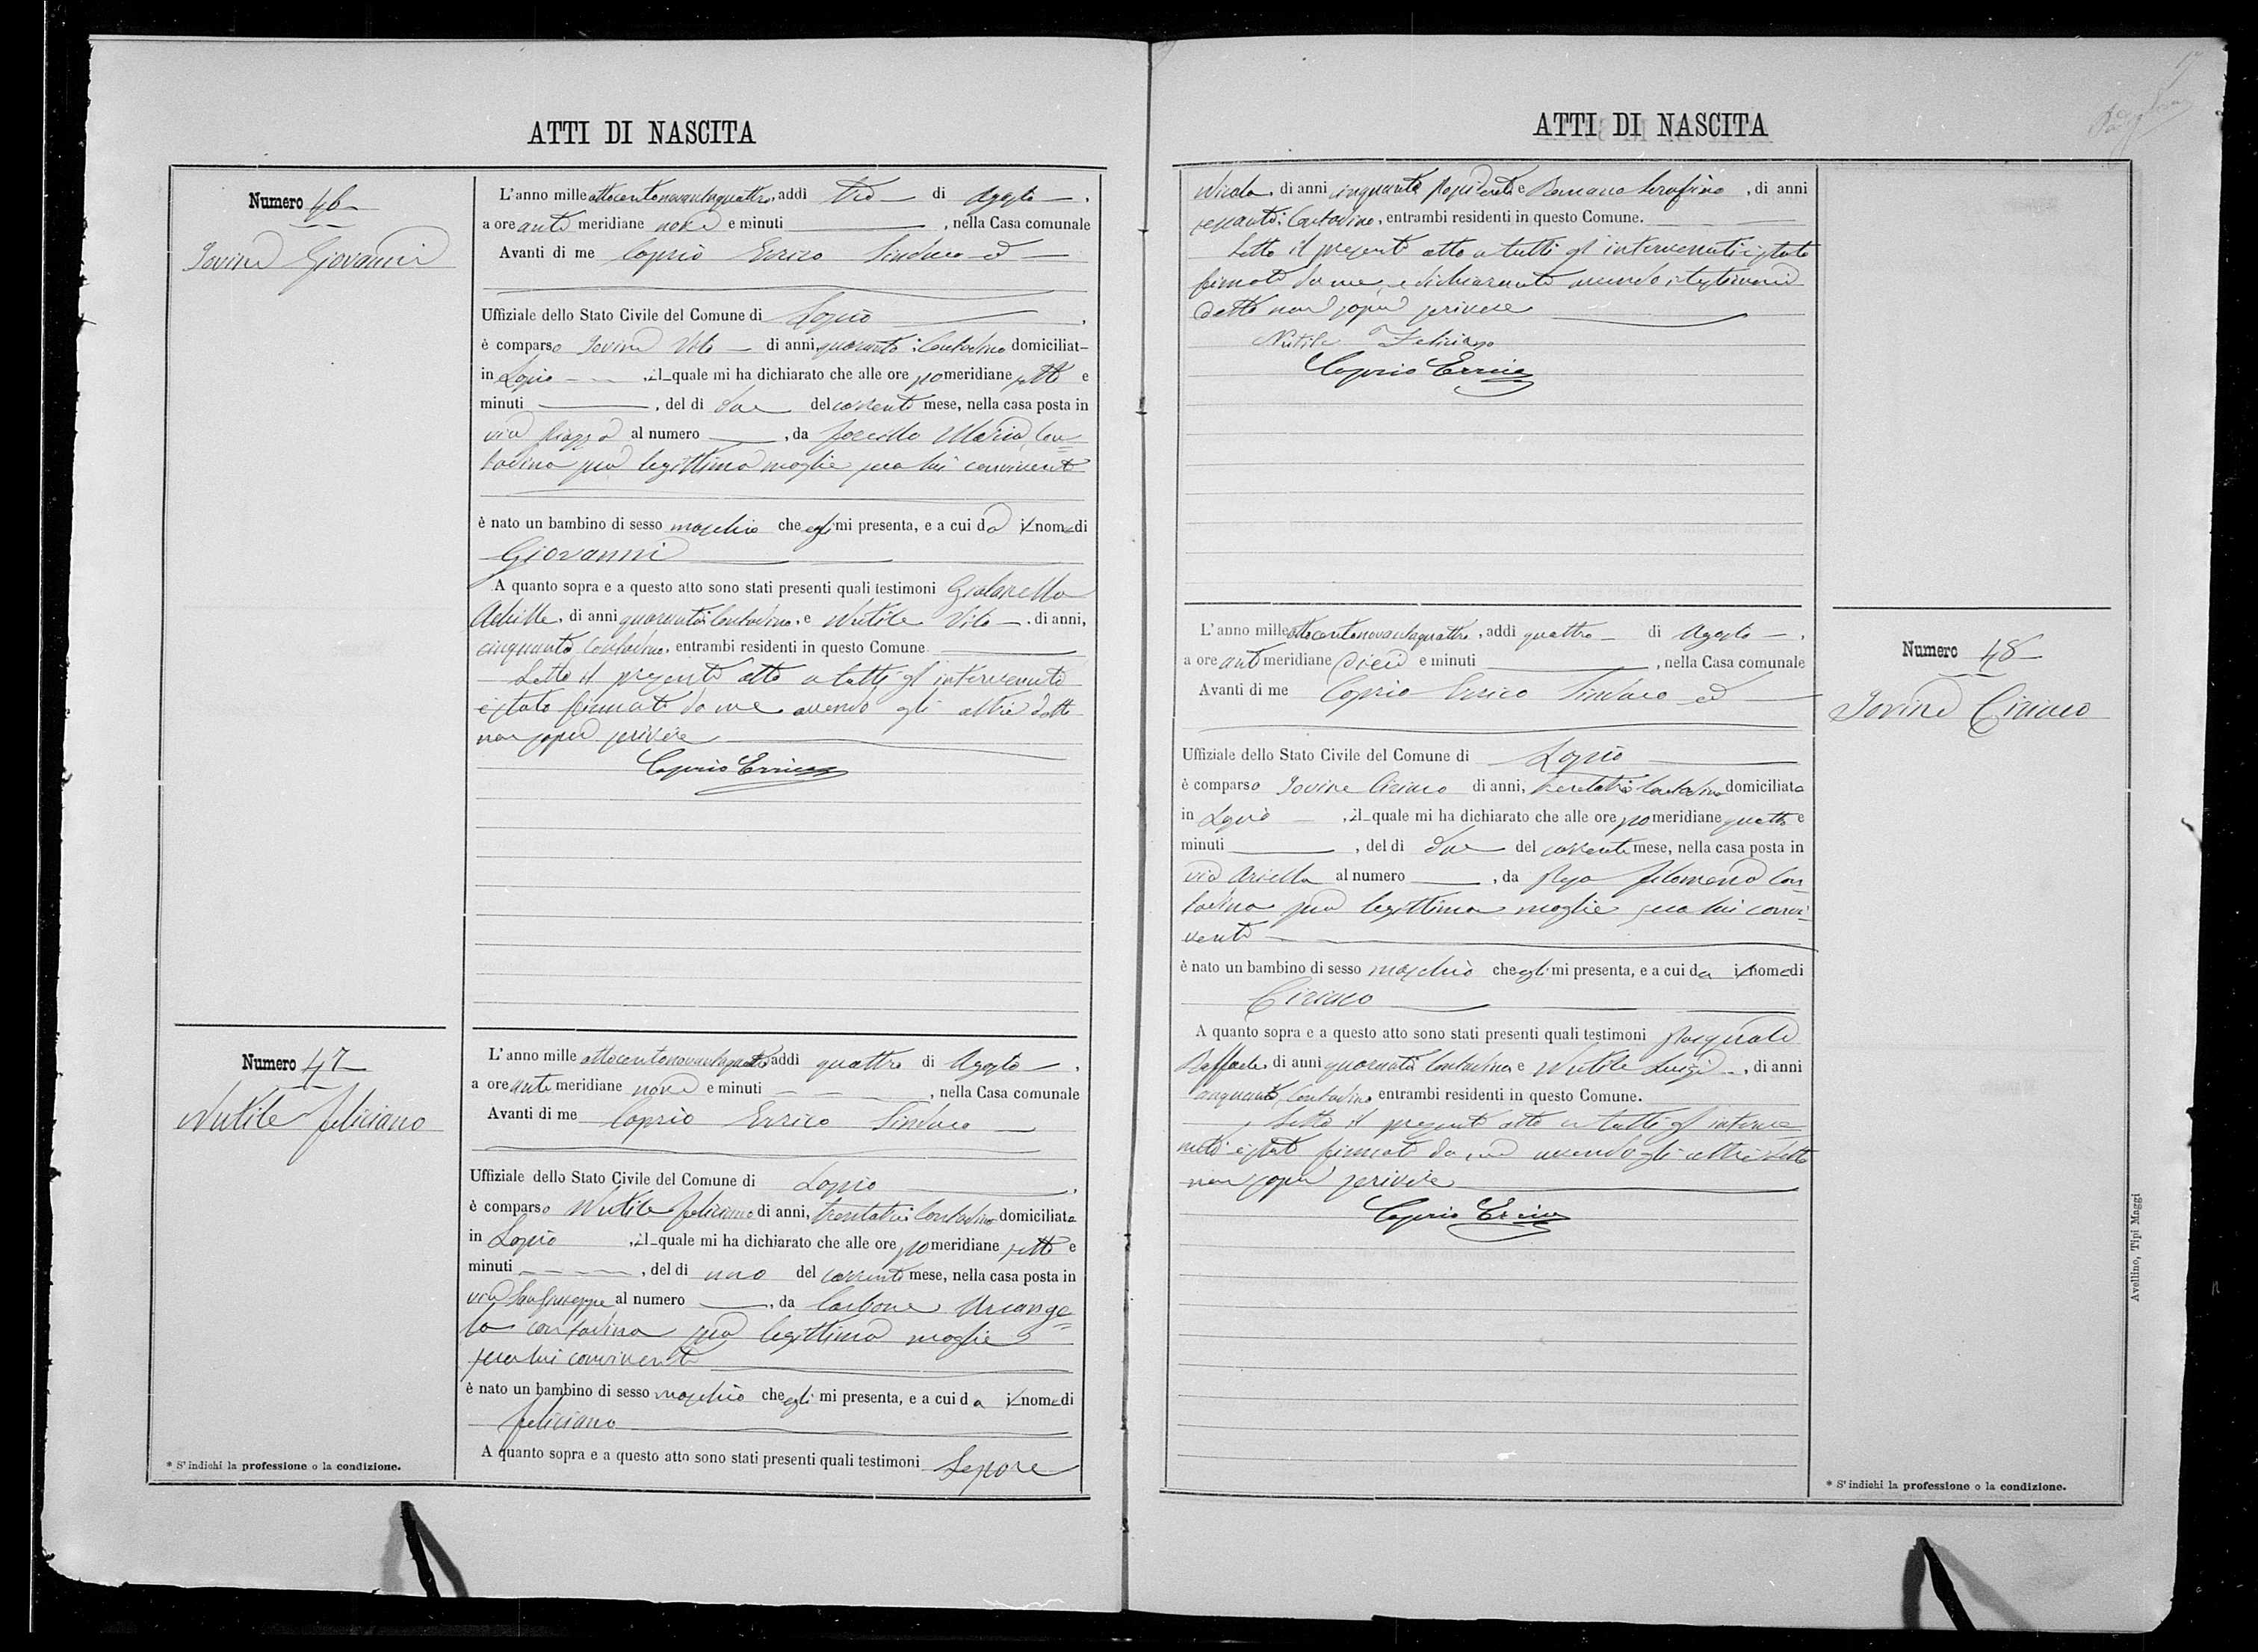 ATTI DI NASCITA
Numero 46
Iovine Giovanni
L'anno mille ottocentonovantaquattro, addì tre di Agosto,
a ore anti meridiane nove e minuti , nella Casa comunale
Avanti di me Caprio Errico Sindaco ed
Uffiziale dello Stato Civile del Comune di Lapio
è comparso Iovine Vito di anni, quaranta; Contadino domiciliat
in Lapio , il quale mi ha dichiarato che alle ore po meridiane sette e
minuti , del dì due del corrente mese, nella casa posta in
via Piazza al numero , da Maria, Con
tadina sua legittima moglie seco lui convivente
è nato un bambino di sesso maschio che egli mi presenta, e a cui dà il nome di
Giovanni
A quanto sopra e a questo atto sono stati presenti quali testimoni
Achille, di anni quaranta Contadino, e Nutile Vito, di anni,
cinquanta Contadino, entrambi residenti in questo Comune
Letto il presente atto a tutti gl'intervenuti
è stato firmato da me avendo gli altri detto
non saper scrivere
Caprio Errico
Numero 47
Nutile Feliciano
L'anno mille ottocentonovantaquattro addì quattro di Agosto,
a ore anti meridiane nove e minuti , nella Casa comunale
Avanti di me Caprio Errico Sindaco
Uffiziale dello Stato Civile del Comune di Lapio
è comparso Nutile Feliciano di anni, trentatre Contadino domiciliato
in Lapio , il quale mi ha dichiarato che alle ore po meridiane sette e
minuti , del dì uno del corrente mese, nella casa posta in
via San Giuseppe al numero , da Carbone Arcange
la contadina sua legittima moglie
seco lui convivente
è nato un bambino di sesso maschio che egli mi presenta, e a cui da il nome di
Feliciano
A quanto sopra e a questo atto sono stati presenti quali testimoni Lepore
* S'indichi la professione o la condizione.
ATTI DI NASCITA
Nicola, di anni cinquanta e Romano Serafino, di anni
sessanta; Contadino, entrambi residenti in questo Comune.
Letto il presente atto a tutti gl'intervenuti è stato
firmato da me, e dichiarante avendo i testimoni
detto non saper scrivere
Nutile Feliciano
Caprio Errico
Numero 48
Iovine Ciriaco
L'anno mille ottocentonovantaquattro, addì quattro di Agosto,
a ore anti meridiane dieci e minuti , nella Casa comunale
Avanti di me Caprio Errico Sindaco ed
Uffiziale dello Stato Civile del Comune di Lapio
è comparso Iovine Ciriaco di anni, Contadino domiciliato
in Lapio , il quale mi ha dichiarato che alle ore po meridiane quattro e
minuti , del dì due del corrente mese, nella casa posta in
via Ariella al numero , da Filomena Con
tadina sua legittima moglie seco lui convi
vente
è nato un bambino di sesso maschio che egli mi presenta, e a cui da il nome di
Ciriaco
A quanto sopra e a questo atto sono stati presenti quali testimoni Pasquale
Raffaele, di anni quaranta Contadino, e Nutile Luigi, di anni
cinquanta, Contadino entrambi residenti in questo Comune.
Letto il presente atto a tutti gl'interve
nuti è stato firmato da me avendo gli altri detto
non saper scrivere
Caprio Errico
Avellino, Tipi Maggi
* S'indichi la professione o la condizione.